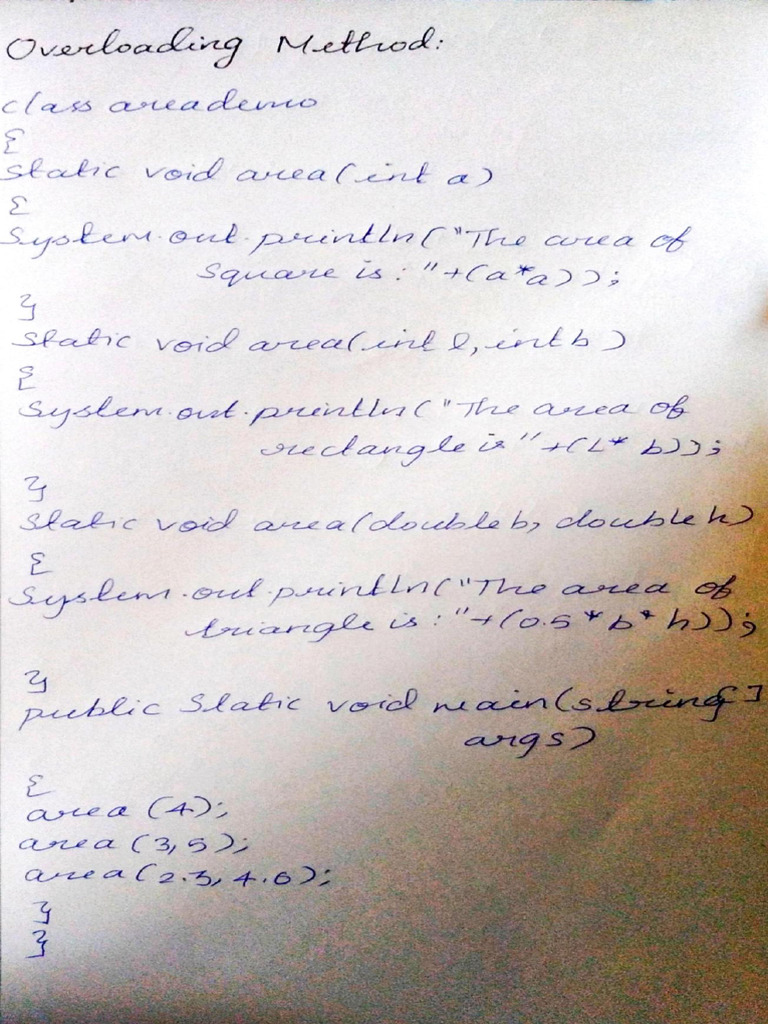 Overloading Method:
class areademo
{
static void area(int a)
{
System.out.println("The area of
square is : "+(a*a));
}
static void area(int l, int b)
{
System.out.println("The area of
rectangle is" +(L* b));
}
static void area(double b, double h)
{
System.out.println("The area of
triangle is : "+(0.5*b*h));
}
public static void main(string[]
args)
{
area (4);
area (3,5);
area(2.3, 4.6);
}
}